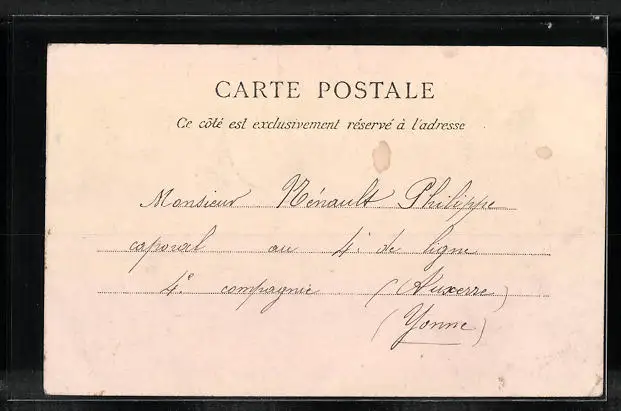 CARTE POSTALE
Ce côté est exclusivement réservé à l'adresse
Monsieur Rénault Philippe
caporal au 4e de ligne
4e compagnie (Auxerre)
(Yonne)